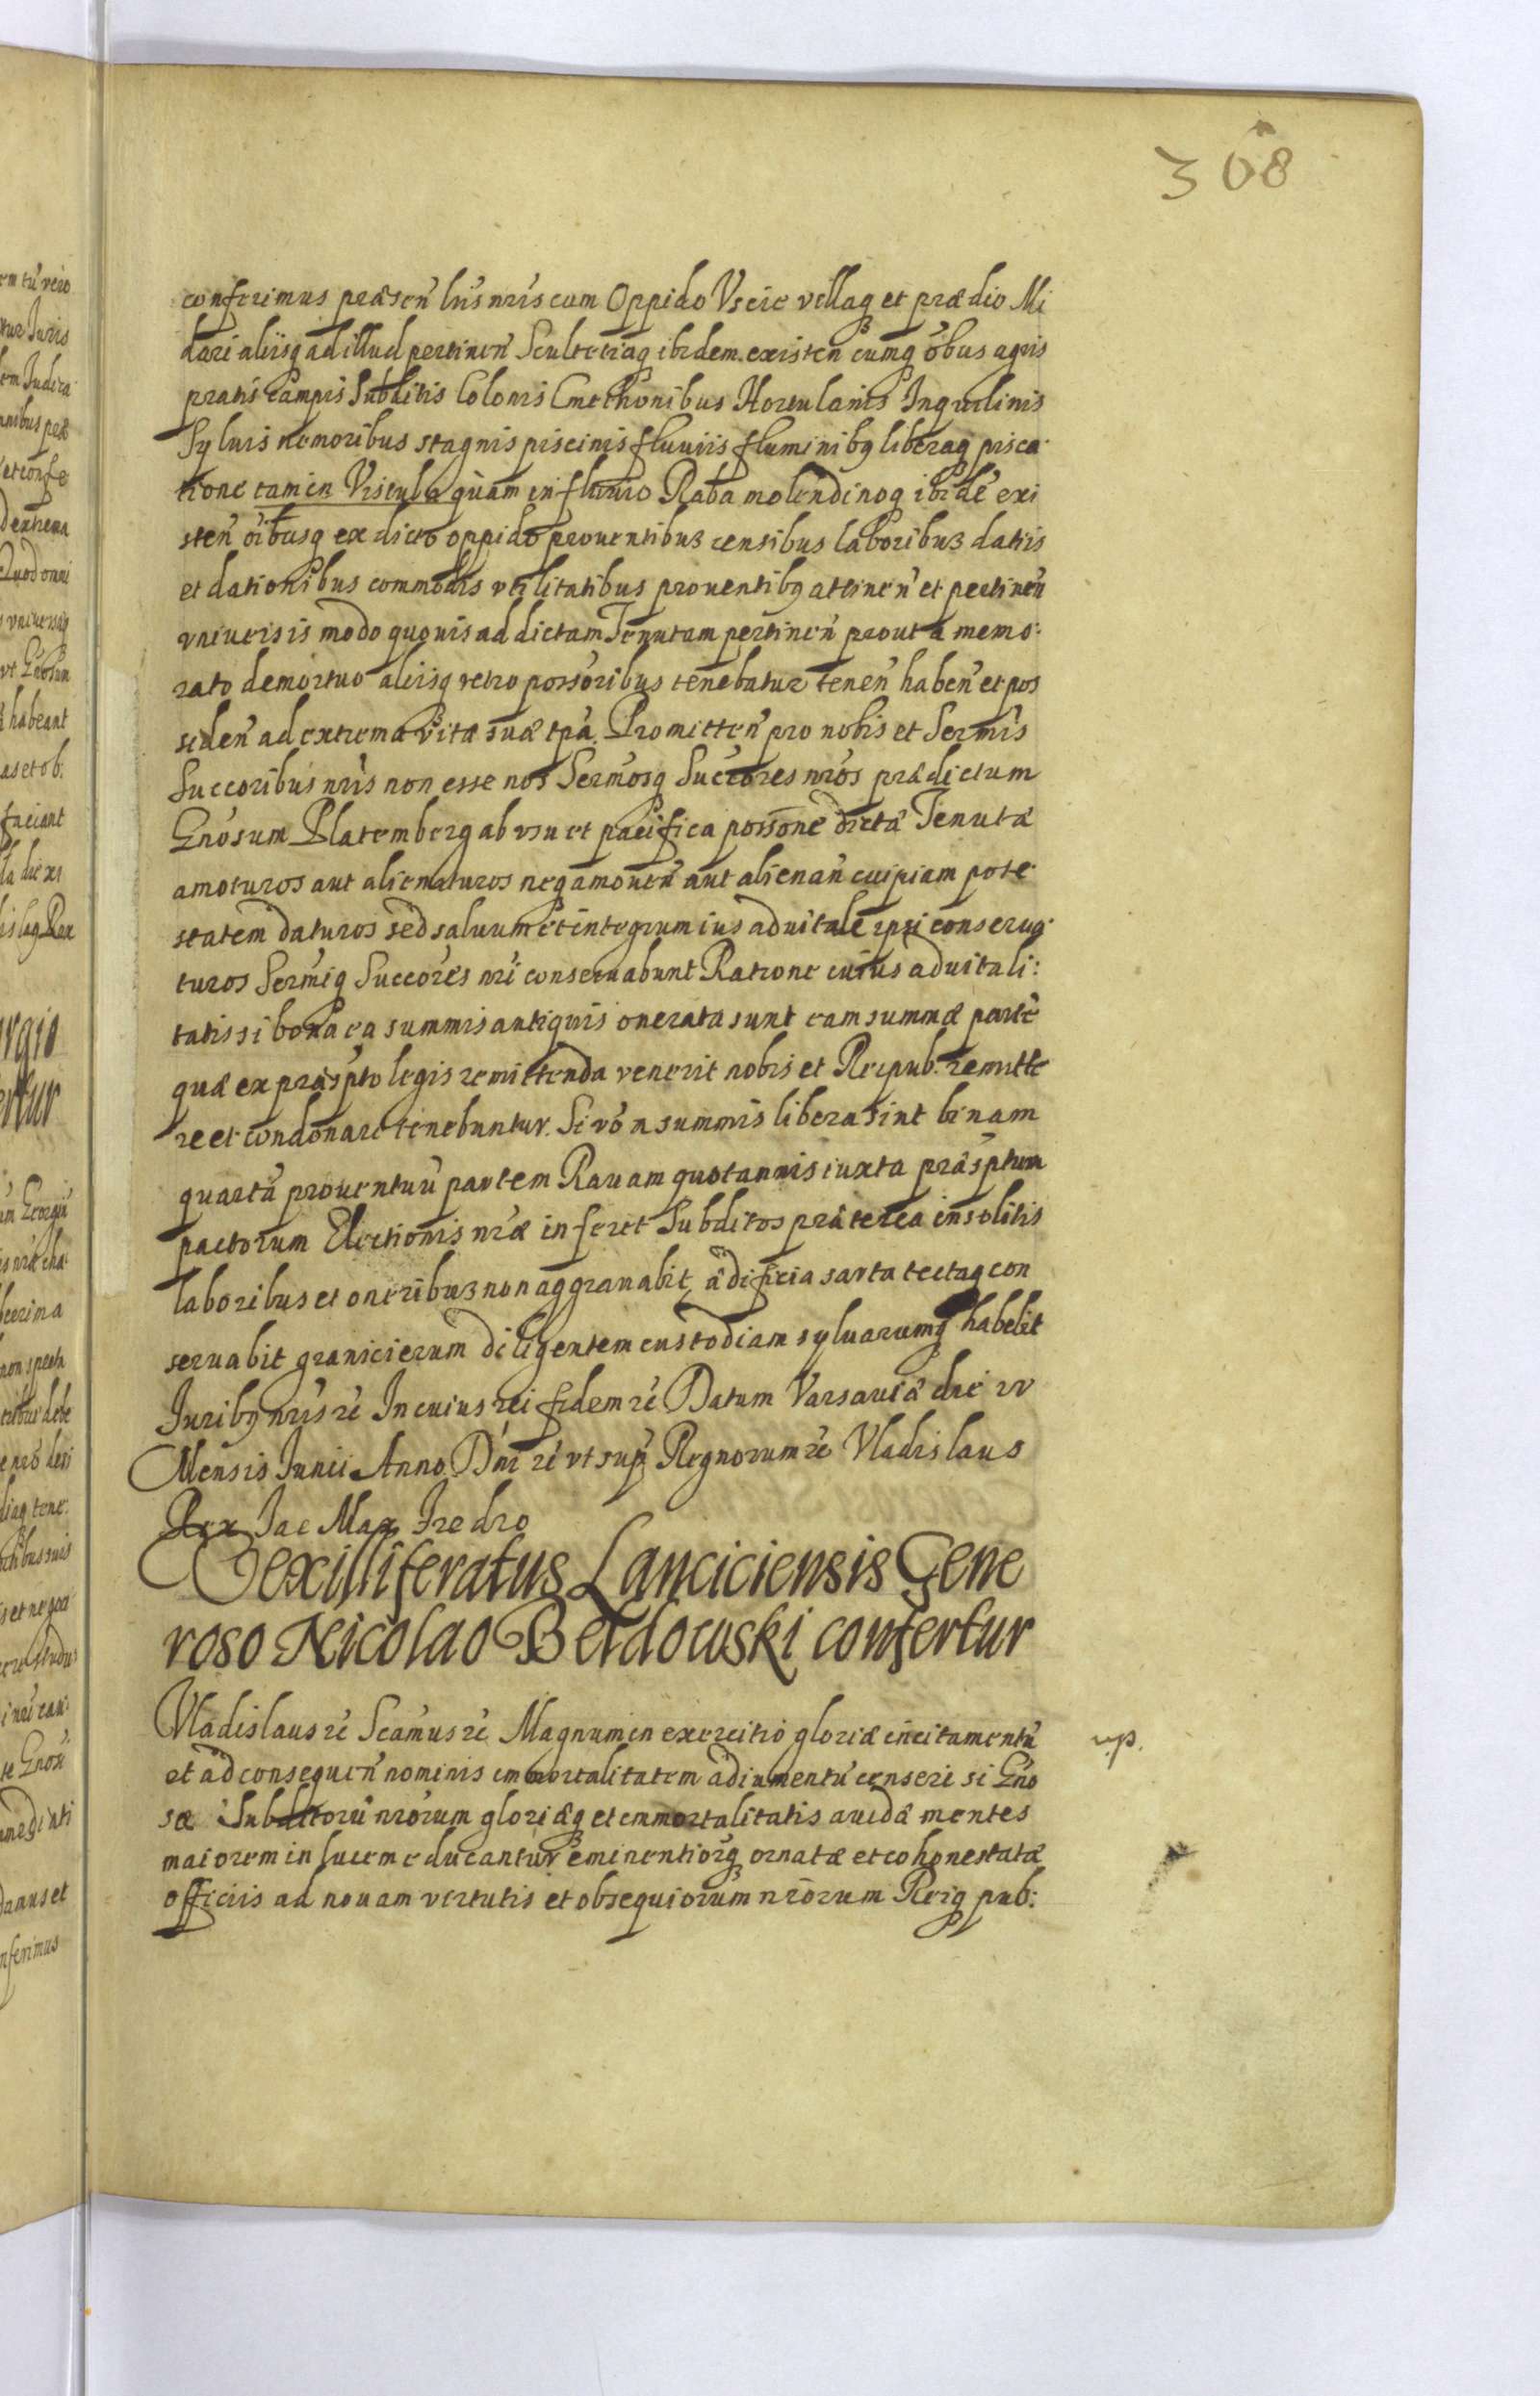 308
conferimus præsen̄ lr̄is nr̄is cum Oppido Vscie villaq et prædio Mi
dari aliisq ad illud pertinen̄ Scultetiaq ibidem existen̄ cumq ōbus agris
pratis campis Subditis Colonis Cmethonibus Hortulanis Inquilinis
Syluis nemoribus stagnis piscinis fluuiis fluminibq liberaq pisca
tione tam in Vistula quàm in fluuio Raba molendinoq ibidē exi
sten̄ oībusq ex dicto oppido prouentibus censibus laboribus datiis
et dationibus commodis vtilitatibus prouentibq attinen̄ et pertinen̄
vniuersis modo quouis ad dictam Tenutam pertinen̄ prout a memo
rato demortuo aliisq retro possōribus tenebatur tenen̄ haben̄ et pos
siden̄ ad extrema vitæ suæ tp̄a. Promitten̄ pro nobis et Sermīs
Succoribus nr̄is non esse nos Sermōsq Succōres nr̄os prædictum
Gnōsum Platemberg ab vsu et pacifica possōne dictæ Tenutæ
amoturos aut alienaturos neq amouen̄ aut alienan̄ cuipiam pote
statem daturos sed saluum et integrum ius aduitale ipsi conserua
turos Sermīq Succōres nr̄i conseruabunt Ratione cuius aduitali:
tatis si bona ea summis antiquis onerata sunt eam summæ partē
quæ ex præsp̄to legis remittenda venerit nobis et Reipub. remitte
re et condonare tenebuntur. Si vō a summis libera sint binam
quartā prouentuū partem Rauam quotannis iuxta præsp̄tum
pactorum Electionis nr̄æ inferet Subditos præterea insolitis
laboribus et oneribus non aggrauabit ædificia sarta tectaq con
seruabit granicierum diligentem custodiam syluarumq habebit
Juribq nr̄is rē In cuius rei fidem rē Datum Varsauiæ die IV
Mensis Junii Anno Dn̄i rē vt sup Regnorum rē Vladislaus
Rex Jac Max Fredro
Vexilliferatus Lanciciensis Gene
roso Nicolao Beldowski confertur
Vladislaus rē Scāmus rē Magnum in exercitio gloriæ incitamentū
et ad consequen̄ nominis immortalitatem adiumentū censeri si Gno
sæ Subditorū nr̄orum gloriæq et immortalitatis auidæ mentes
maiorem in lucem educantur eminentiorq ornatæ et cohonestatæ
officiis ad nouam virtutis et obsequiorum nr̄orum Reiq pub: